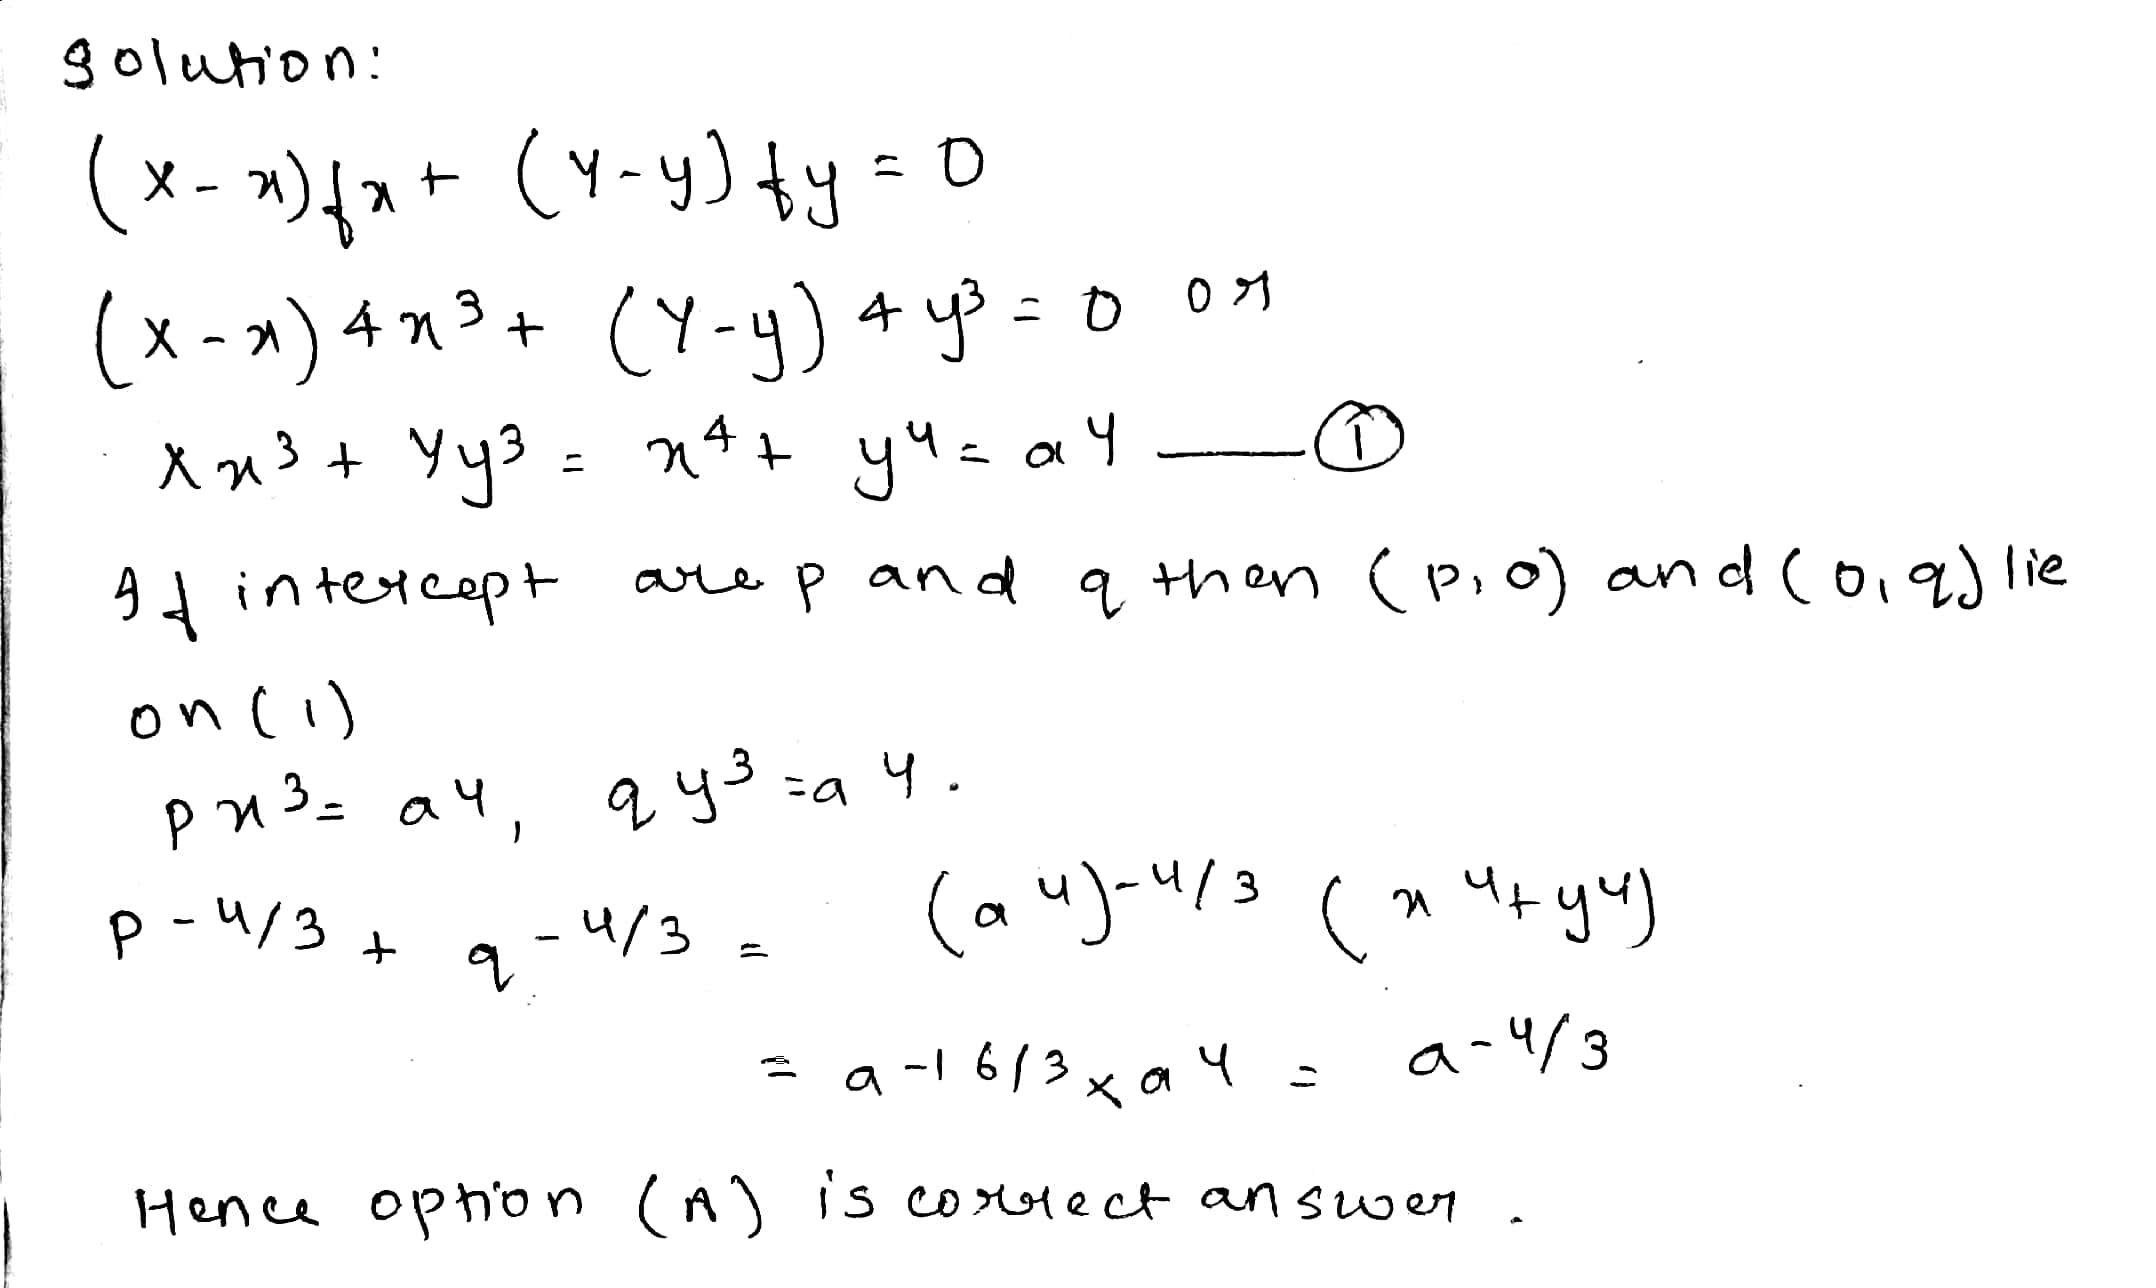 Solution:
(X-x)fx + (Y-y)fy = 0
(X-x)4x³ + (Y-y)4y³ = 0 or
Xx³ + Yy³ = x⁴ + y⁴ = a⁴ —— ①
If intercept are p and q then (p,0) and (0,q) lie
on (1)
px³ = a⁴, qy³ = a⁴.
p-4/3 + q-4/3 = (a⁴)-4/3 (x⁴+y⁴)
= a-16/3 × a⁴ = a-4/3
Hence option (A) is correct answer.